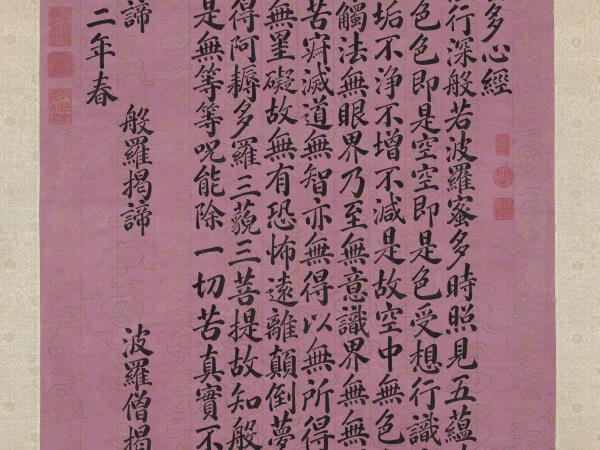 多心經
行深般若波羅蜜多時照見五蘊
色色即是空空即是色受想行識
垢不淨不增不減是故空中無色
觸法無眼界乃至無意識界無無
苦寂滅道無智亦無得以無所得
無罣礙故無有恐怖遠離顛倒夢
得阿耨多羅三藐三菩提故知般
是無等等呪能除一切苦真實不
諦 般羅揭諦 波羅僧揭
二年春